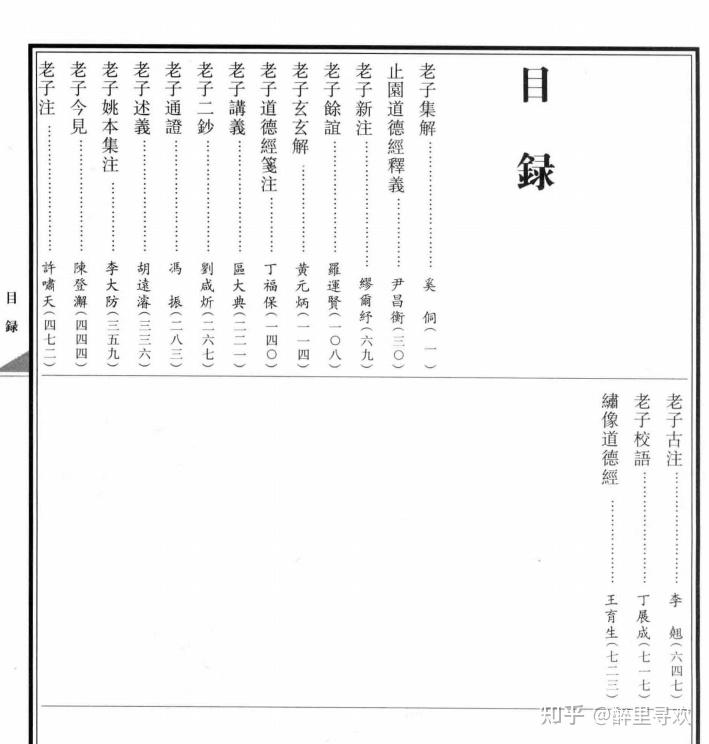 目録
老子集解……………………奚　侗(一)
止園道德經釋義……………………尹昌衡(三〇)
老子新注……………………繆爾紓(六九)
老子餘誼……………………羅運賢(一〇八)
老子玄玄解……………………黃元炳(一一四)
老子道德經箋注……………………丁福保(一四〇)
老子講義……………………區大典(二二一)
老子二鈔……………………劉咸炘(二六七)
老子通證……………………馮　振(二八三)
老子述義……………………胡遠濬(三三六)
老子姚本集注……………………李大防(三五九)
老子今見……………………陳登澥(四四四)
老子注……………………許嘯天(四七二)
老子古注……………………李　翹(六四七)
老子校語……………………丁展成(七一七)
繡像道德經……………………王育生(七二三)
目録
知乎 @醉里寻欢